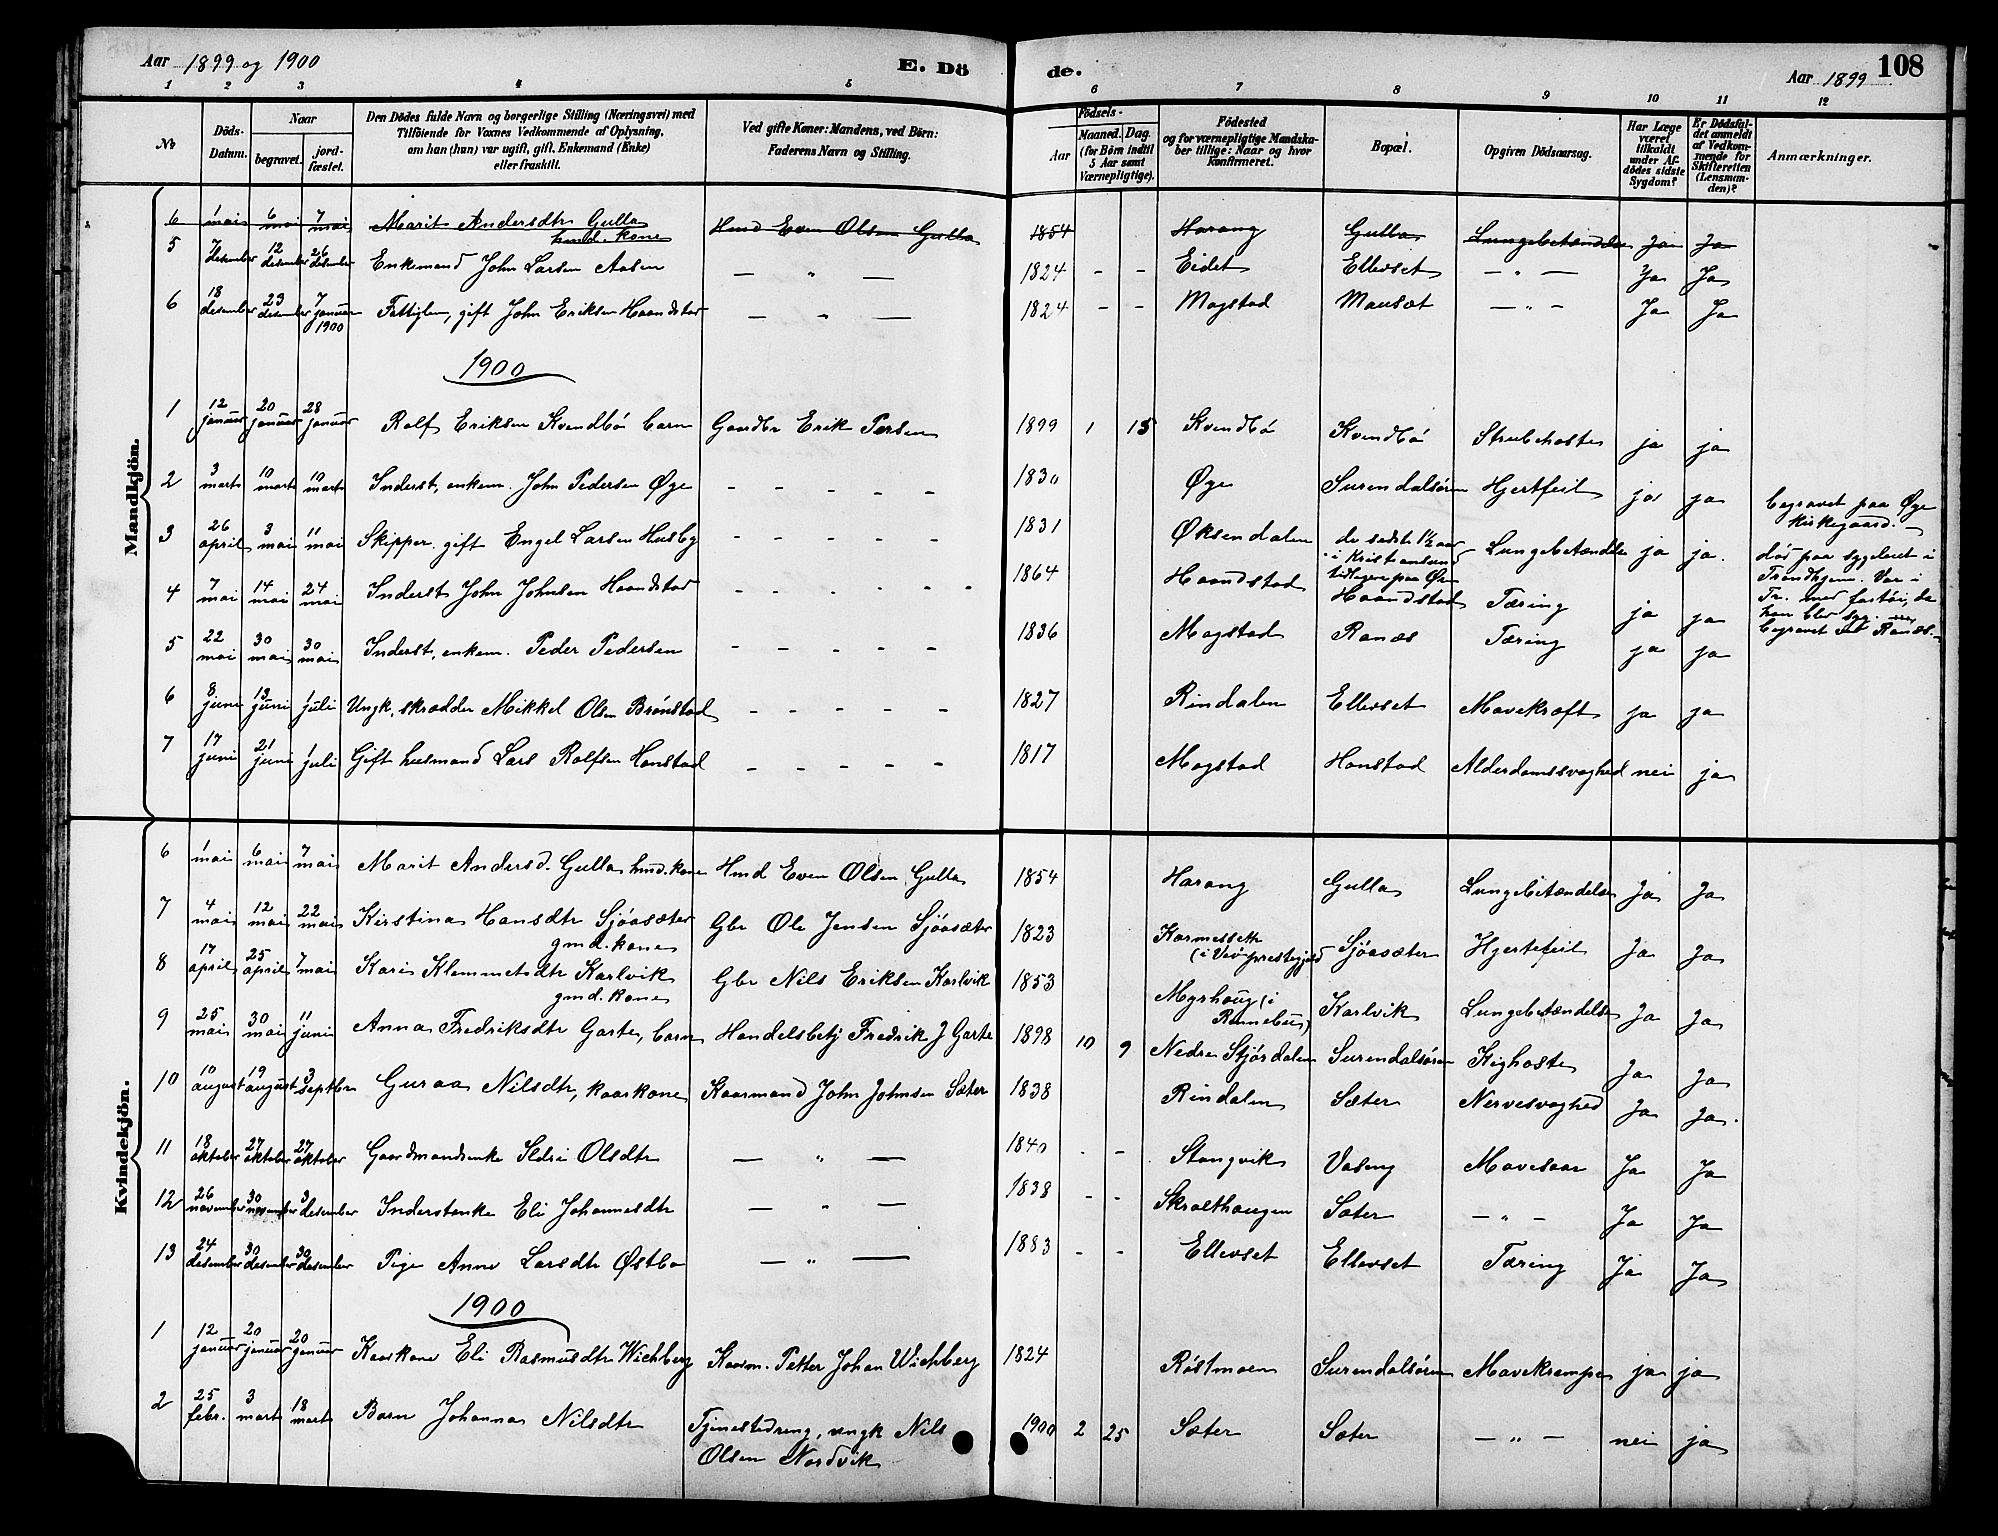 Aar 1899 og 1900 E. Dö de. Aar 1899 108
1 2 3 4 5 6 7 8 9 10 11 12
No Döds-Datum. Naar begravet. jordfæstet. Den Dödes fulde Navn og borgerlige Stilling (Næringsvei) med Tilföiende for Voxnes Vedkommende af Oplysning, om han (hun) var ugift, gift, Enkemand (Enke) eller fraskilt. Ved gifte Koner: Mandens, ved Börn: Faderens Navn og Stilling. Födsels- Aar Maaned. Dag. (for Börn indtil 5 Aar samt Værnepligtige). Födested og for værnepligtige Mandskaber tillige: Naar og hvor konfirmeret. Bopæl. Opgiven Dödsaarsag. Har Læge været tilkaldt under Afdödes sidste Sygdom? Er Dödsfaldet anmeldt af Vedkommende for Skifteretten (Lensmanden)? Anmærkninger.
Mandkjön.
6 1 mai 6 mai 7 mai Marit Andersdtr Gulla husd. kone Hmd Even Olsen Gulla 1854 Harang Gulla Lungebetændelse ja Ja
5 7 desember 12 desember 26 desember Enkemand John Larsen Aasen — " — 1824 - - Eidet Ellevset — " — Ja Ja
6 18 desember 23 desember 7 januar 1900 Fattiglem, gift John Eriksen Haandstad — " — 1824 - - Mogstad Mausæt — " — Ja Ja
1900
1 12 januar 20 januar 28 januar Rolf Eriksen Kvendbö barn Gaardbr Erik Persen 1899 1 15 Kvendbö Kvendbö Strubehoste ja ja
2 3 marts 10 marts 10 marts Inderst, enkem. John Pedersen Øye - - - - - 1830 Øye Surendalsören Hjertfeil ja ja begravet paa Øye kirkegaard. —
3 26 april 3 mai 11 mai Skipper. gift Engel Larsen Husby - - - - - 1831 Øksendalen de sidste 1½ aar i Kristiansund tidligere paa Øye Lungebetændelse ja ja. död paa sygehuset i Trondhjem. Var i Tr. med fartöi, da han blev syg.
4 7 mai 14 mai 24 mai Inderst John Johnsen Haandstad - - - - - - 1864 Haandstad Haandstad Tæring ja ja
5 22 mai 30 mai 30 mai Inderst, enkem. Peder Pedersen - - - - - 1836 Mogstad Ranæs Tæring ja ja begravet ved Ranæs. —
6 8 juni 13 juni 1 juli Ungk, skrædder Mikkel Olsen Brönstad - - - - - 1827 Rindalen Ellevset Mavekræft ja ja
7 17 juni 21 juni 1 juli Gift husmand Lars Rolfsen Honstad - - - - - 1817 Mogstad Honstad Alderdomssvaghed nei ja
Kvindekjön.
6 1 mai 6 mai 7 mai Marit Andersd. Gulla hmd. kone Hmd Even Olsen Gulla 1854 Harang Gulla Lungebetændelse Ja Ja
7 4 mai 12 mai 22 mai Kirstina Hansdtr Sjöasæter gmd. kone Gbr Ole Jensen Sjöasæter 1823 (i Vevöprestegjeld) Sjöasæter Hjertefeil Ja Ja
8 17 april 25 april 7 mai Kari Klemmetsdtr Karlvik gmd. kone Gbr Nils Eriksen Karlvik 1853 Myrhaug (i Rennebu) Karlvik Lungebetændelse Ja Ja
9 25 mai 30 mai 11 juni Anna Fredriksdtr Garte, barn Handelsbetj Fredrik J Garte 1898 10 9 Nedre Stjørdalen Surendalsören Kighoste Ja Ja
10 10 august 19 august 3 septbr Guraa Nilsdtr, kaarkone Kaarmand John Johnsen Sæter 1838 Rindalen Sæter Nervesvaghed Ja Ja.
11 18 oktober 27 oktober 27 oktober Gaardmandsenke Sldri Olsdtr — " — 1840 - - Stangvik Vaseng Mavesaar Ja Ja
12 26 november 30 november 3 desember Inderstenke Eli Johannesdtr — " — 1838 - - Skralthaugen Sæter — " — Ja Ja
13 24 desember 30 desember 30 desember Pige Anne Larsdtr Østbø — " — 1883 - - Ellevset Ellevset Tæring Ja Ja
1900
1 12 januar 20 januar 20 januar Kaarkone Eli Rasmusdtr Wichberg Kaarm. Petter Johan Wichberg 1824 Röstmoen Surendalsören Mavekrampe ja ja
2 25 febr. 3 marts 18 marts Barn Johanna Nilsdtr Tjenestedreng, ungk Nils Olsen Nordvik 1900 2 25 Sæter Sæter — " — nei ja